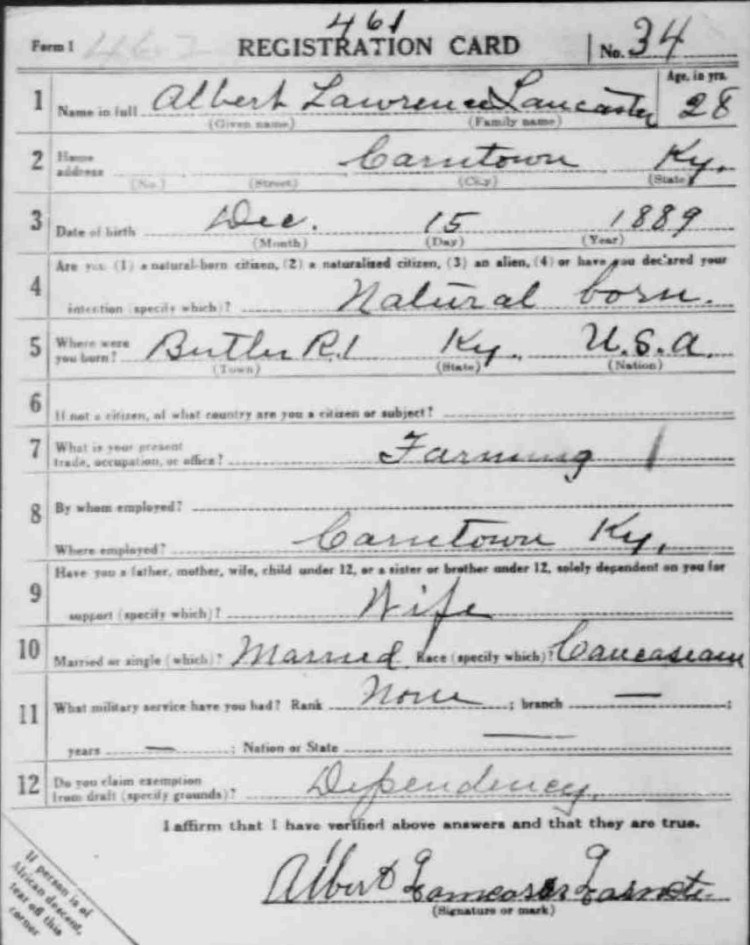 461
Form 1 462 REGISTRATION CARD No. 34
1 Name in full Albert Lawrence Lancaster Age, in yrs. 28
(Given name) (Family name)
2 Home address Carntown Ky.
(No.) (Street) (City) (State)
3 Date of birth Dec. 15 1889
(Month) (Day) (Year)
4 Are you (1) a natural-born citizen, (2) a naturalized citizen, (3) an alien, (4) or have you declared your
intention (specify which)? Natural born.
5 Where were you born? Butler R.1 Ky. U.S.A.
(Town) (State) (Nation)
6 If not a citizen, of what country are you a citizen or subject?
7 What is your present
trade, occupation, or office? Farming 1
8 By whom employed?
Where employed? Carntown Ky,
9 Have you a father, mother, wife, child under 12, or a sister or brother under 12, solely dependent on you for
support (specify which)? Wife
10 Married or single (which)? Married Race (specify which)? Caucaseam
11 What military service have you had? Rank None ; branch — ;
years — ; Nation or State —
12 Do you claim exemption
from draft (specify grounds)? Dependency.
I affirm that I have verified above answers and that they are true.
Albert
(Signature or mark)
If person is of
African descent,
tear off this
corner